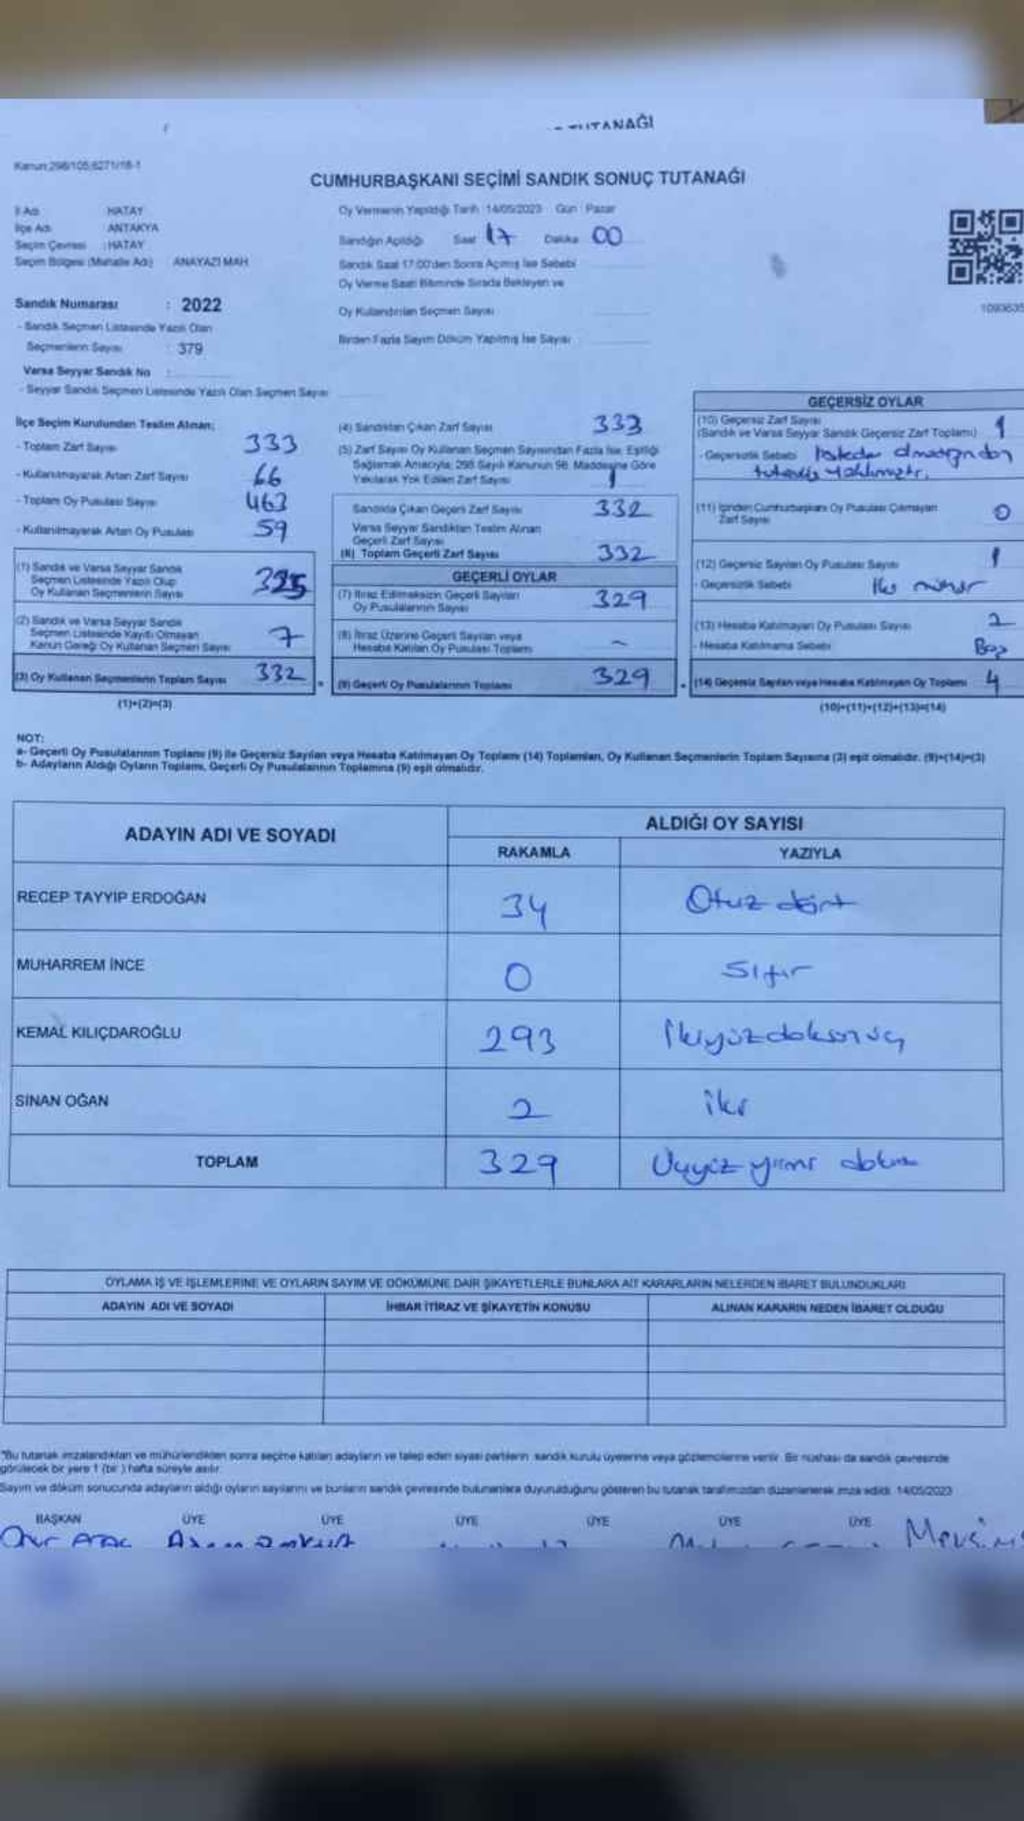 TUTANAĞI
Kanun:298/105,6271/18-1
CUMHURBAŞKANI SEÇİMİ SANDIK SONUÇ TUTANAĞI
İl Adı : HATAY
İlçe Adı : ANTAKYA
Seçim Çevresi : HATAY
Seçim Bölgesi (Mahalle Adı) ANAYAZI MAH
Sandık Numarası : 2022
- Sandık Seçmen Listesinde Yazılı Olan
Seçmenlerin Sayısı : 379
Varsa Seyyar Sandık No :
- Seyyar Sandık Seçmen Listesinde Yazılı Olan Seçmen Sayısı
Oy Vermenin Yapıldığı Tarih : 14/05/2023 Gün : Pazar
Sandığın Açıldığı Saat 17 Dakika 00
Sandık Saat 17:00'den Sonra Açılmış İse Sebebi
Oy Verme Saati Bitiminde Sırada Bekleyen ve
Oy Kullandırılan Seçmen Sayısı
Birden Fazla Sayım Döküm Yapılmış İse Sayısı :
1093635
İlçe Seçim Kurulundan Teslim Alınan;
- Toplam Zarf Sayısı 333
- Kullanılmayarak Artan Zarf Sayısı 66
- Toplam Oy Pusulası Sayısı 463
- Kullanılmayarak Artan Oy Pusulası 59
(1) Sandık ve Varsa Seyyar Sandık
Seçmen Listesinde Yazılı Olup
Oy Kullanan Seçmenlerin Sayısı 325
(2) Sandık ve Varsa Seyyar Sandık
Seçmen Listesinde Kayıtlı Olmayan
Kanun Gereği Oy Kullanan Seçmen Sayısı 7
(3) Oy Kullanan Seçmenlerin Toplam Sayısı 332
(1)+(2)=(3)
(4) Sandıktan Çıkan Zarf Sayısı 333
(5) Zarf Sayısı Oy Kullanan Seçmen Sayısından Fazla İse, Eşitliği
Sağlamak Amacıyla, 298 Sayılı Kanunun 98. Maddesine Göre
Yakılarak Yok Edilen Zarf Sayısı 1
Sandıkta Çıkan Geçerli Zarf Sayısı 332
Varsa Seyyar Sandıktan Teslim Alınan
Geçerli Zarf Sayısı
(6) Toplam Geçerli Zarf Sayısı 332
GEÇERLİ OYLAR
(7) İtiraz Edilmeksizin Geçerli Sayılan
Oy Pusulalarının Sayısı 329
(8) İtiraz Üzerine Geçerli Sayılan veya
Hesaba Katılan Oy Pusulası Toplamı -
(9) Geçerli Oy Pusulalarının Toplamı 329
GEÇERSİZ OYLAR
(10) Geçersiz Zarf Sayısı 1
(Sandık ve Varsa Seyyar Sandık Geçersiz Zarf Toplamı)
- Geçersizlik Sebebi
(11) İçinden Cumhurbaşkanı Oy Pusulası Çıkmayan
Zarf Sayısı 0
(12) Geçersiz Sayılan Oy Pusulası Sayısı 1
- Geçersizlik Sebebi İki mühür
(13) Hesaba Katılmayan Oy Pusulası Sayısı 2
- Hesaba Katılmama Sebebi Boş
(14) Geçersiz Sayılan veya Hesaba Katılmayan Oy Toplamı 4
(10)+(11)+(12)+(13)=(14)
NOT:
a- Geçerli Oy Pusulalarının Toplamı (9) ile Geçersiz Sayılan veya Hesaba Katılmayan Oy Toplamı (14) Toplamları, Oy Kullanan Seçmenlerin Toplam Sayısına (3) eşit olmalıdır. (9)+(14)=(3)
b- Adayların Aldığı Oyların Toplamı, Geçerli Oy Pusulalarının Toplamına (9) eşit olmalıdır.
ADAYIN ADI VE SOYADI ALDIĞI OY SAYISI
RAKAMLA YAZIYLA
RECEP TAYYİP ERDOĞAN 34 Otuz dört
MUHARREM İNCE 0 Sıfır
KEMAL KILIÇDAROĞLU 293 İkiyüzdoksanüç
SİNAN OĞAN 2 iki
TOPLAM 329 Üçyüz yirmi dokuz
OYLAMA İŞ VE İŞLEMLERİNE VE OYLARIN SAYIM VE DÖKÜMÜNE DAİR ŞİKAYETLERLE BUNLARA AİT KARARLARIN NELERDEN İBARET BULUNDUKLARI
ADAYIN ADI VE SOYADI İHBAR İTİRAZ VE ŞİKAYETİN KONUSU ALINAN KARARIN NEDEN İBARET OLDUĞU
"Bu tutanak imzalandıktan ve mühürlendikten sonra seçime katılan adayların ve talep eden siyasi partilerin sandık kurulu üyelerine veya gözlemcilerine verilir. Bir nüshası da sandık çevresinde
görülecek bir yere 1 (bir ) hafta süreyle asılır.
Sayım ve döküm sonucunda adayların aldığı oyların sayılarını ve bunların sandık çevresinde bulunanlara duyurulduğunu gösteren bu tutanak tarafımızdan düzenlenerek imza edildi. 14/05/2023
BAŞKAN ÜYE ÜYE ÜYE ÜYE ÜYE ÜYE